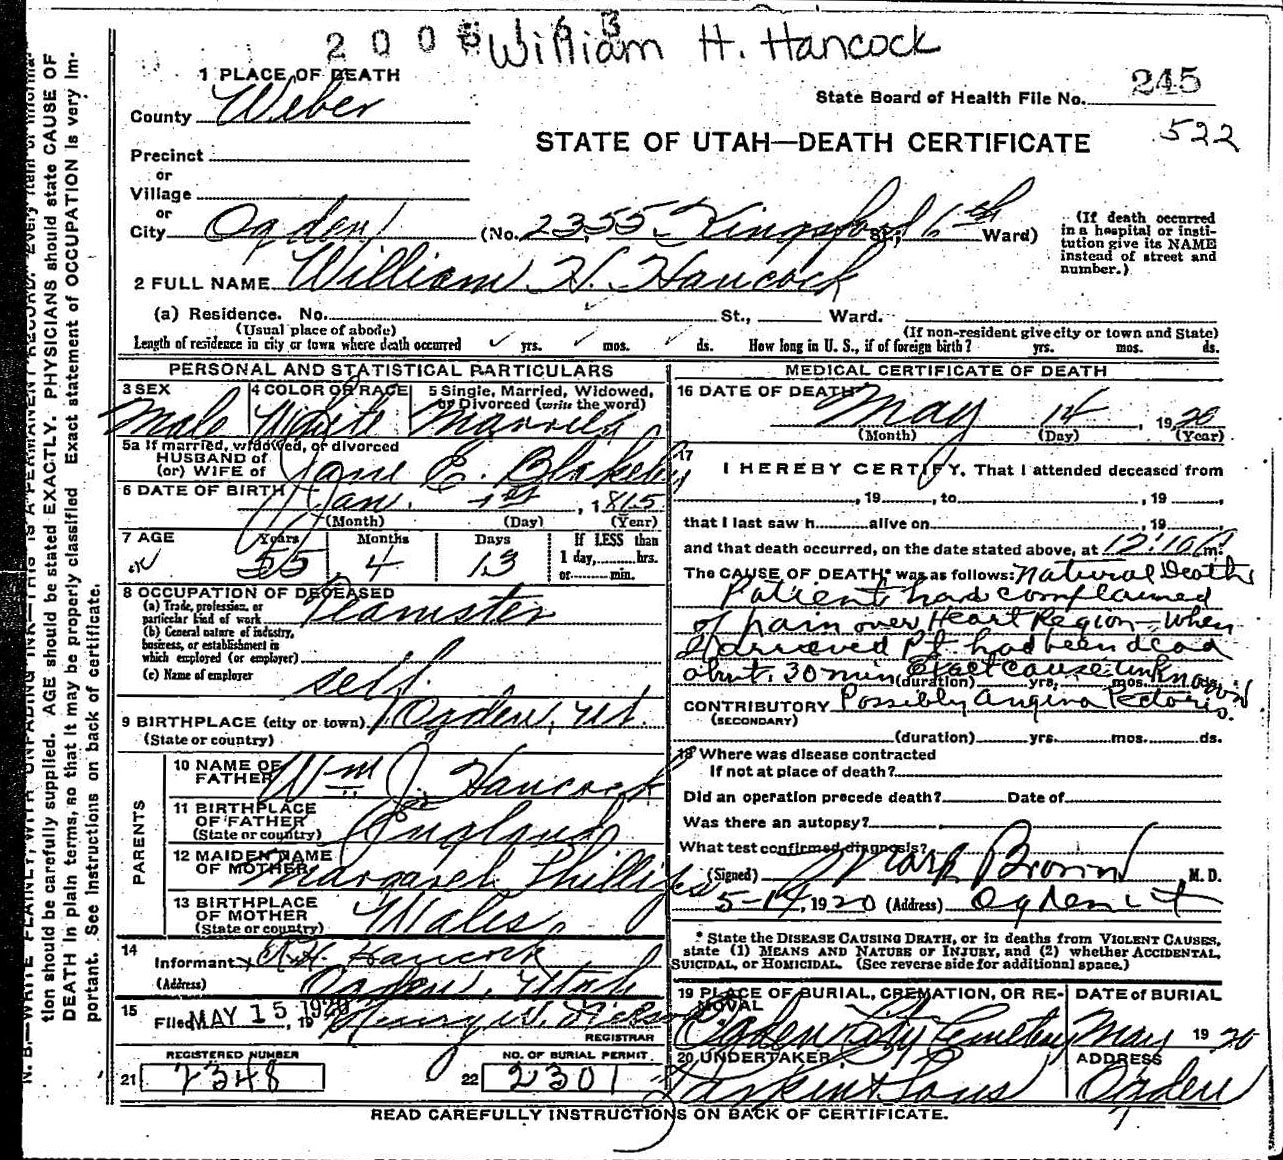 2 0 0 6 3
William H. Hancock
1 PLACE OF DEATH
County Weber
State Board of Health File No. 245
522
STATE OF UTAH—DEATH CERTIFICATE
Precinct
or
Village
or
City Ogden (No. 2355 Kingsford St., 6th Ward)
(If death occurred in a hospital or institution give its NAME instead of street and number.)
2 FULL NAME William H. Hancock
(a) Residence. No. St., Ward.
(Usual place of abode) (If non-resident give city or town and State)
Length of residence in city or town where death occurred yrs. mos. ds. How long in U. S., if of foreign birth? yrs. mos. ds.
PERSONAL AND STATISTICAL PARTICULARS
3 SEX Male
4 COLOR OR RACE White
5 Single, Married, Widowed, or Divorced (write the word) Married
5a If married, widowed, or divorced
HUSBAND of
(or) WIFE of Jane E. Blakeley
6 DATE OF BIRTH Jan. 1st, 1865
(Month) (Day) (Year)
7 AGE Years 55 Months 4 Days 13
If LESS than 1 day, hrs. or min.
8 OCCUPATION OF DECEASED
(a) Trade, profession, or particular kind of work Teamster
(b) General nature of industry, business, or establishment in which employed (or employer)
(c) Name of employer self.
9 BIRTHPLACE (city or town) Ogden, Ut.
(State or country)
PARENTS
10 NAME OF FATHER Wm J. Hancock
11 BIRTHPLACE OF FATHER England
(State or country)
12 MAIDEN NAME OF MOTHER Margaret Phillips
13 BIRTHPLACE OF MOTHER Wales
(State or country)
14
Informant Hancock
(Address) Ogden, Utah
15
Filed MAY 15 1920, 19 Henry W.
REGISTRAR
REGISTERED NUMBER
21 2348
NO. OF BURIAL PERMIT.
22 2301
MEDICAL CERTIFICATE OF DEATH
16 DATE OF DEATH
May 14, 1920
(Month) (Day) (Year)
17
I HEREBY CERTIFY, That I attended deceased from
, 19 , to , 19 ,
that I last saw h alive on , 19 ,
and that death occurred, on the date stated above, at 12:10 m.
The CAUSE OF DEATH* was as follows: Natural Death
Patient had complained
of pain over Heart Region - When
I arrieved Pt. had been dead
about 30 min Exact cause unknown
(duration) yrs. mos. ds.
CONTRIBUTORY Possibly Angina Pectoris.
(SECONDARY)
(duration) yrs. mos. ds.
18 Where was disease contracted
If not at place of death?
Did an operation precede death? Date of
Was there an autopsy?
What test confirmed diagnosis?
(Signed) Mark Brown M. D.
5-14, 1920 (Address) Ogden Ut
* State the DISEASE CAUSING DEATH, or in deaths from VIOLENT CAUSES, state (1) MEANS AND NATURE OF INJURY, and (2) whether ACCIDENTAL, SUICIDAL, or HOMICIDAL. (See reverse side for additional space.)
19 PLACE OF BURIAL, CREMATION, OR REMOVAL
Ogden City Cemetery
DATE of BURIAL
May 1920
20 UNDERTAKER
Larkin & Sons
ADDRESS
Ogden
READ CAREFULLY INSTRUCTIONS ON BACK OF CERTIFICATE.
N. B.—WRITE PLAINLY, WITH UNFADING INK—THIS IS A PERMANENT RECORD. Every item of
tion should be carefully supplied. AGE should be stated EXACTLY. PHYSICIANS should state CAUSE OF
DEATH in plain terms, so that it may be properly classified Exact statement of OCCUPATION is very im-
portant. See Instructions on back of certificate.